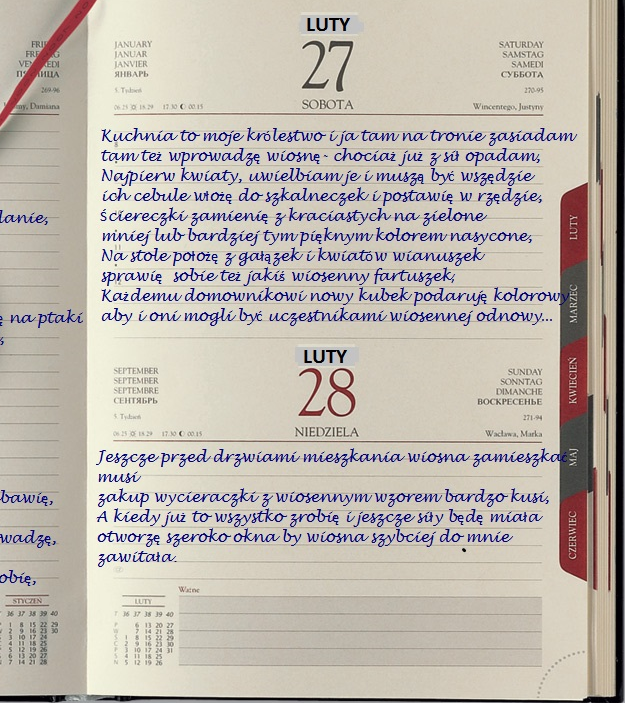 lanie,
ę na ptaki
bawię,
wadzę,
obię,
269-96
ny, Damiana
STYCZEŃ
T 36 37 38 39 40
LUTY
27
SOBOTA
JANUARY
JANUAR
JANVIER
ЯНВАРЬ
5. Tydzień
06.25 18.29 17.30 00.15
SATURDAY
SAMSTAG
SAMEDI
СУББОТА
270-95
Wincentego, Justyny
Kuchnia to moje królestwo i ja tam na tronie zasiadam
tam też wprowadzę wiosnę - chociaż już z sił opadam,
Najpierw kwiaty, uwielbiam je i muszą być wszędzie
ich cebule włożę do szkalneczek i postawię w rzędzie,
ściereczki zamienię z kraciastych na zielone
mniej lub bardziej tym pięknym kolorem nasycone,
Na stole położę z gałązek i kwiatów wianuszek
sprawię sobie też jakiś wiosenny fartuszek,
Każdemu domownikowi nowy kubek podaruję kolorowy
aby i oni mogli być uczestnikami wiosennej odnowy...
LUTY
28
NIEDZIELA
SEPTEMBER
SEPTEMBER
SEPTEMBRE
СЕНТЯБРЬ
5. Tydzień
06.25 18.29 17.30 00.15
SUNDAY
SONNTAG
DIMANCHE
ВОСКРЕСЕНЬЕ
271-94
Wacława, Marka
Jeszcze przed drzwiami mieszkania wiosna zamieszkać
musi
zakup wycieraczki z wiosennym wzorem bardzo kusi,
A kiedy już to wszystko zrobię i jeszcze siły będę miała
otworzę szeroko okna by wiosna szybciej do mnie
zawitała.
LUTY
T 36 37 38 39 40
P 6 13 20 27
W 7 14 21 28
Ś 1 8 15 22 29
C 2 9 16 23 30
P 3 10 17 24 31
S 4 11 18 25
N 5 12 19 26
Ważne
LUTY
MARZEC
KWIECIEŃ
MAJ
CZERWIEC